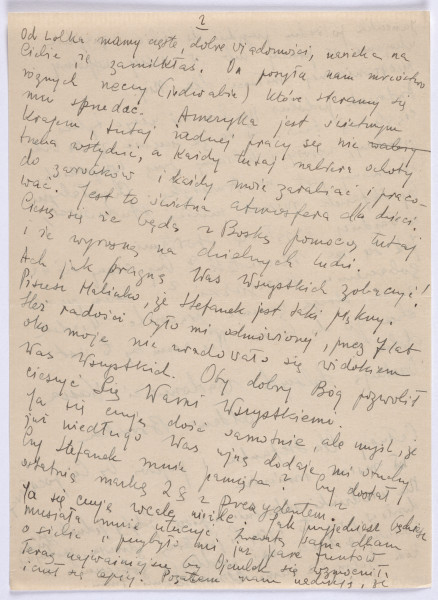 2
Od Lolka mamy częste, dobre wiadomości, narzeka na
Ciebie że zamilkłaś. On posyła nam mnóstwo
rzeczy (jedwabie) które staramy się
mu sprzedać. Ameryka jest świetnym
krajem, tutaj żadnej pracy się nie
trzeba wstydzić, a każdy tutaj nabiera ochoty
do zarobków i każdy może zarabiać i praco-
wać. Jest to świetna atmosfera dla dzieci.
Cieszę się że będą z Boską pomocą, tutaj
i że wyrosną na dzielnych ludzi.
Ach jak pragnę Was Wszystkich zobaczyć!
Piszesz Halinko, że Stefanek jest taki piękny.
Ileż radości było mi odmówionej, przez 7 lat
oko moje nie uradowało się widokiem
Was Wszystkich. Oby dobry Bóg pozwolił
cieszyć Się Wami Wszystkiemi.
Ja się czuję dość samotnie, ale myśl, że
już niedługo Was ujrzę dodaje mi otuchy
Czy Stefanek mnie pamięta i czy dostał
ostatnią markę 2 $ z prezydentem.
Ja się czuję wcale nieźle. Jak przyjedziesz będziesz
musiała mnie utuczyć. Zresztą sama dbam
o siebie i przybyło mi już parę funtów
Teraz najważniejsze by Ojculek się wzmocnił
i czuł się lepiej. Pozatem mam nadzieję, że